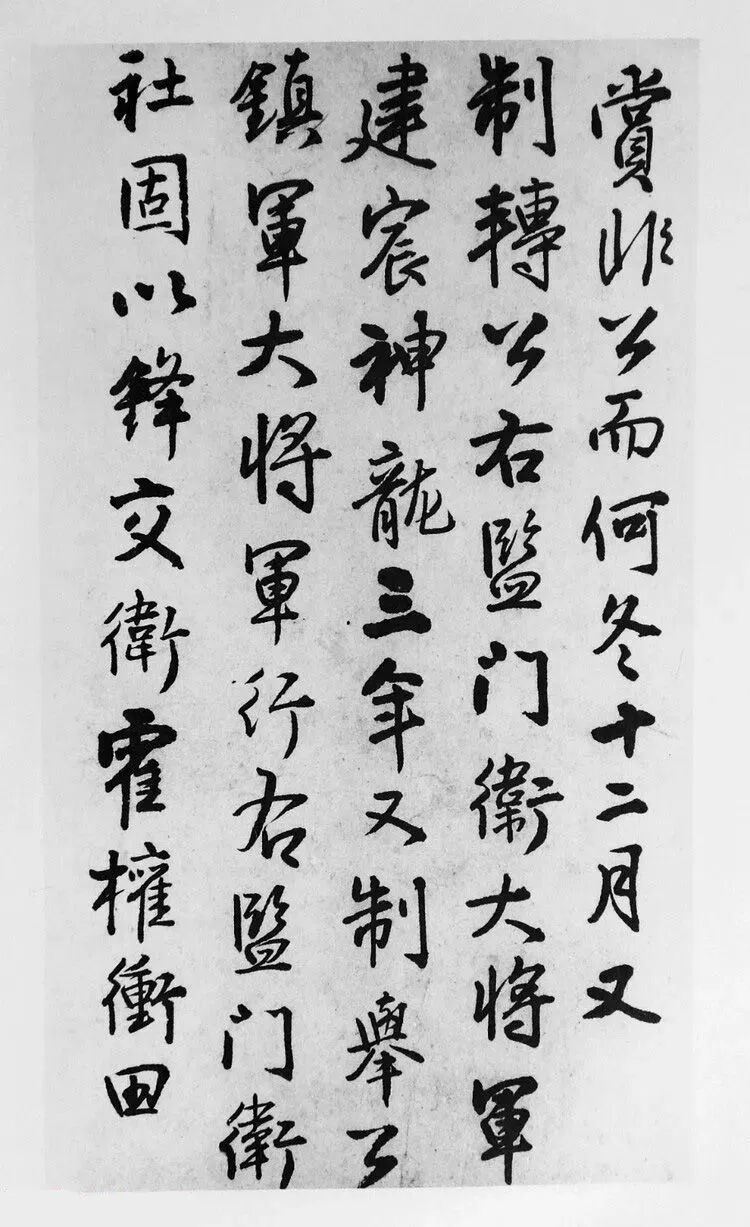 賞非公而何冬十二月又
制轉公右監门衛大将軍
建宸神龍三年又制舉公
鎮軍大将軍行右監门衛
社固以鋒交衛霍權衝田